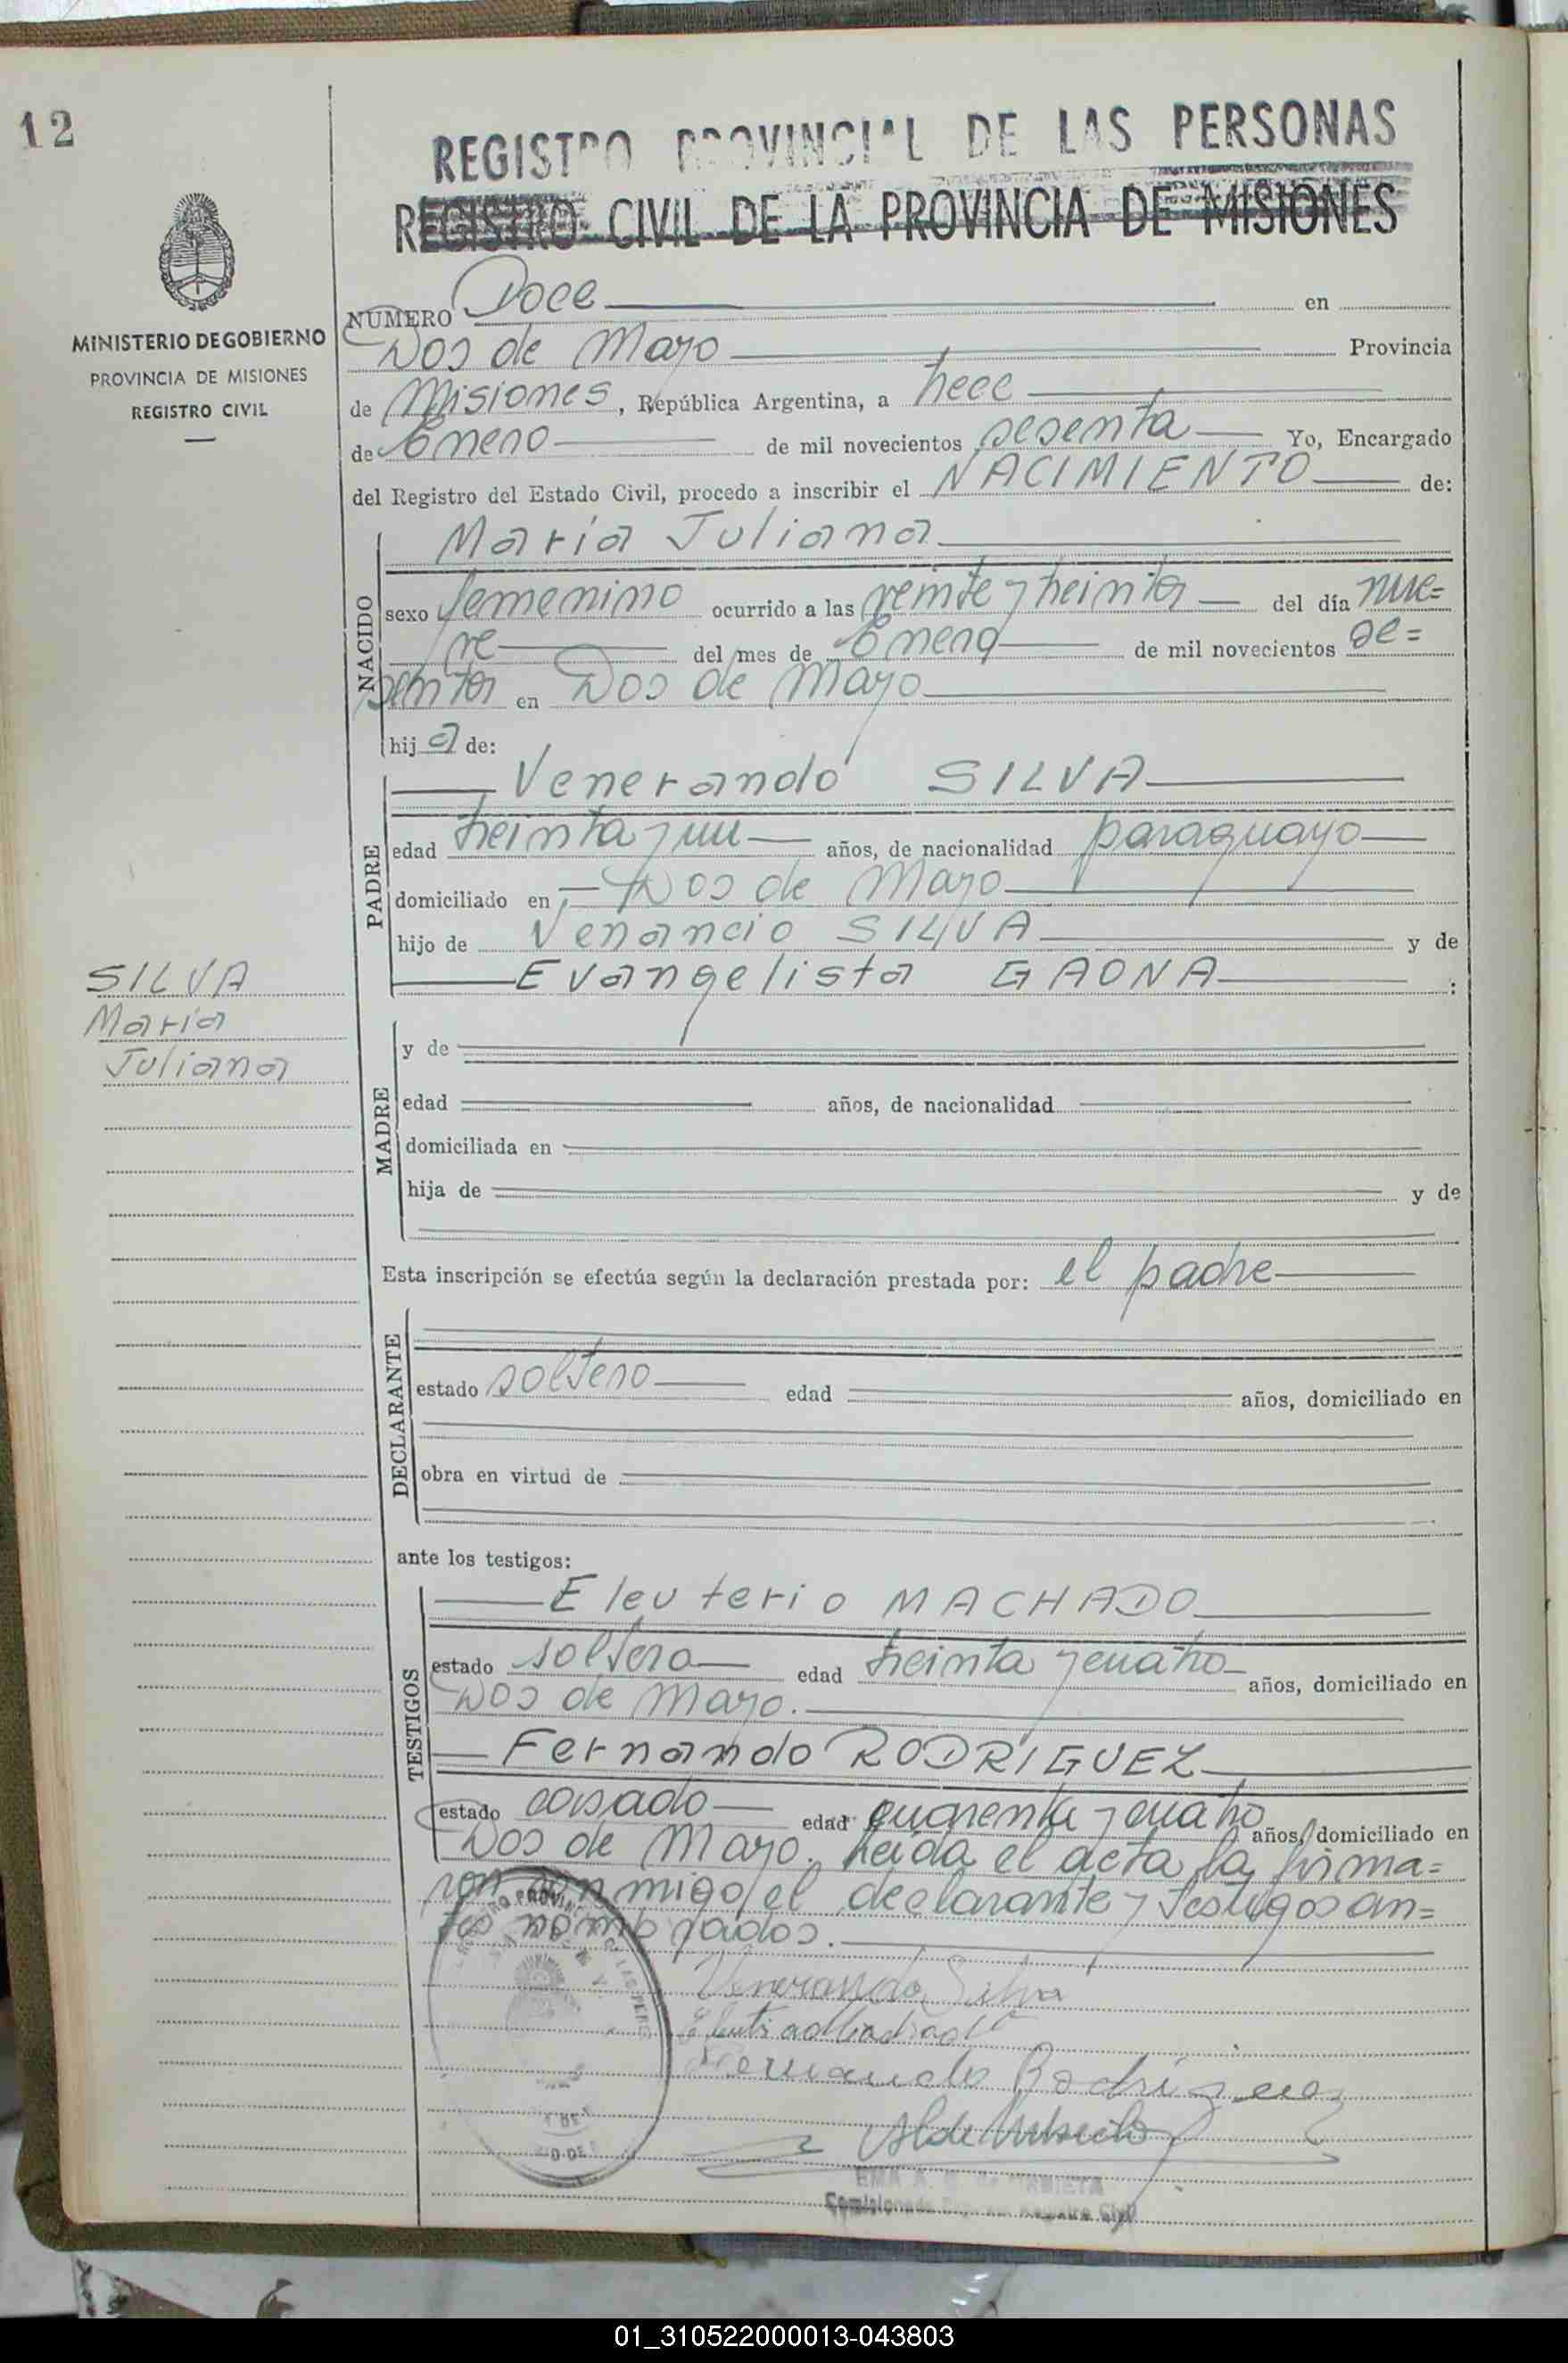 12
REGISTRO PROVINCIAL DE LAS PERSONAS
REGISTRO CIVIL DE LA PROVINCIA DE MISIONES
MINISTERIO DE GOBIERNO
PROVINCIA DE MISIONES
REGISTRO CIVIL
NUMERO Doce en
Dos de Mayo Provincia
de Misiones, República Argentina, a trece
de Enero de mil novecientos sesenta Yo, Encargado
del Registro del Estado Civil, procedo a inscribir el NACIMIENTO de:
NACIDO
María Juliana
sexo femenino ocurrido a las veinte y treinta del día nue=
ve del mes de Enero de mil novecientos se=
senta en Dos de Mayo
hija de:
PADRE
Venerando SILVA
edad treinta y un años, de nacionalidad paraguayo
domiciliado en Dos de Mayo
hijo de Venancio SILVA y de
Evangelista GAONA :
SILVA
María
Juliana
MADRE
y de
edad años, de nacionalidad
domiciliada en
hija de y de
Esta inscripción se efectúa según la declaración prestada por: el padre
DECLARANTE
estado soltero edad años, domiciliado en
obra en virtud de
ante los testigos:
TESTIGOS
Eleuterio MACHADO
estado soltero edad treinta y cuatro años, domiciliado en
Dos de Mayo.
Fernando RODRIGUEZ
estado casado edad cuarenta y cuatro años, domiciliado en
Dos de Mayo. Leída el acta la firma=
ron conmigo el declarante y testigos an=
tes nombrados.
Venerando Silva
Fernando Rodriguez
Registro Civil
01_310522000013-043803